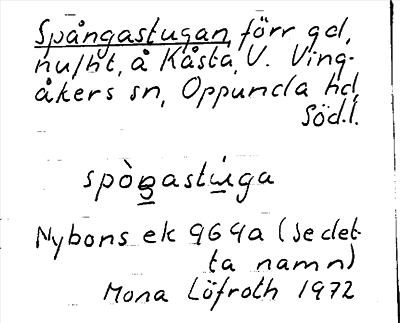 Spångastugan, förr gd,
nu lht, å Kåsta, V. Ving-
åkers sn, Oppunda hd,
Södl.
spòŋastùga
Nybons ek 964a (se det-
ta namn)
Mona Löfroth 1972